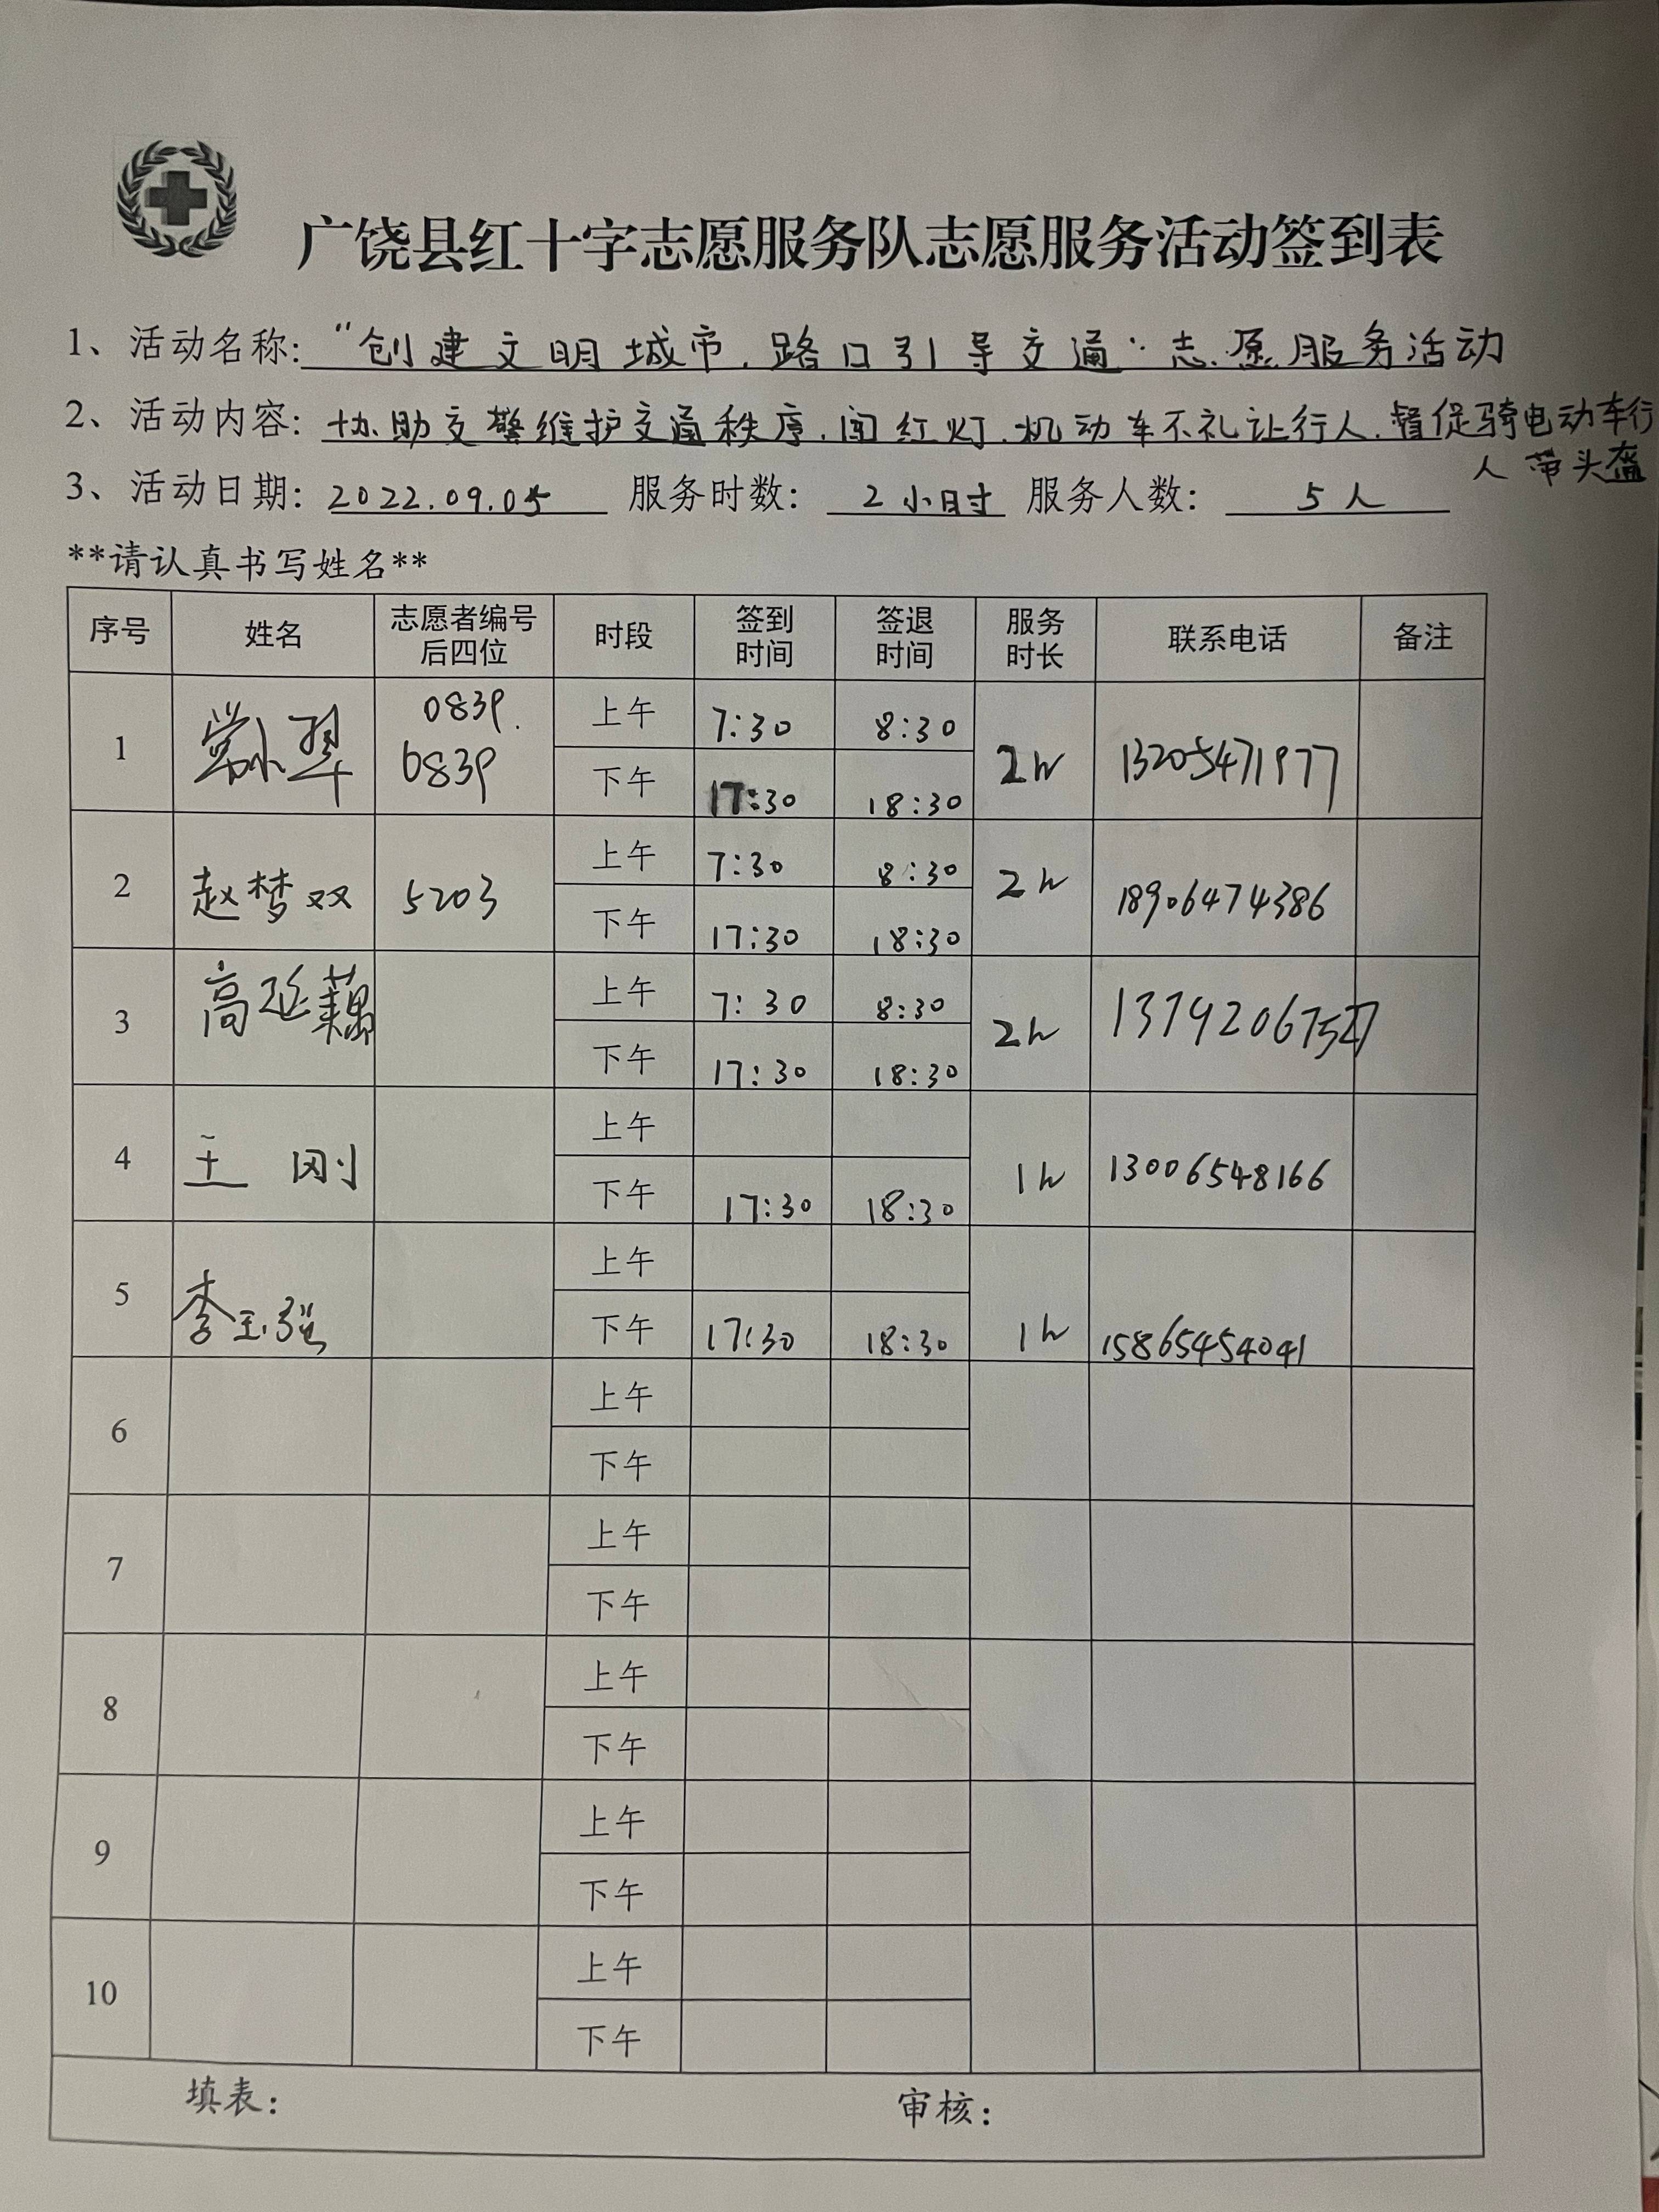 广饶县红十字志愿服务队志愿服务活动签到表
1、活动名称: “创建文明城市.路口引导交通”志愿服务活动
2、活动内容: 协助交警维护交通秩序.闯红灯.机动车不礼让行人.督促骑电动车行
人带头盔
3、活动日期: 2022.09.05 服务时数: 2小时 服务人数: 5人
**请认真书写姓名**
序号 姓名 志愿者编号后四位 时段 签到时间 签退时间 服务时长 联系电话 备注
0839.
1 0839 上午 7:30 8:30 2h 13205471977
下午 17:30 18:30
2 赵梦双 5203 上午 7:30 8:30 2h 18906474386
下午 17:30 18:30
3 高延藕 上午 7:30 8:30 2h
下午 17:30 18:30
4 王刚 上午 1h 13006548166
下午 17:30 18:30
5 李玉强 上午 1h 15865454041
下午 17:30 18:30
6 上午
下午
7 上午
下午
8 上午
下午
9 上午
下午
10 上午
下午
填表: 审核: